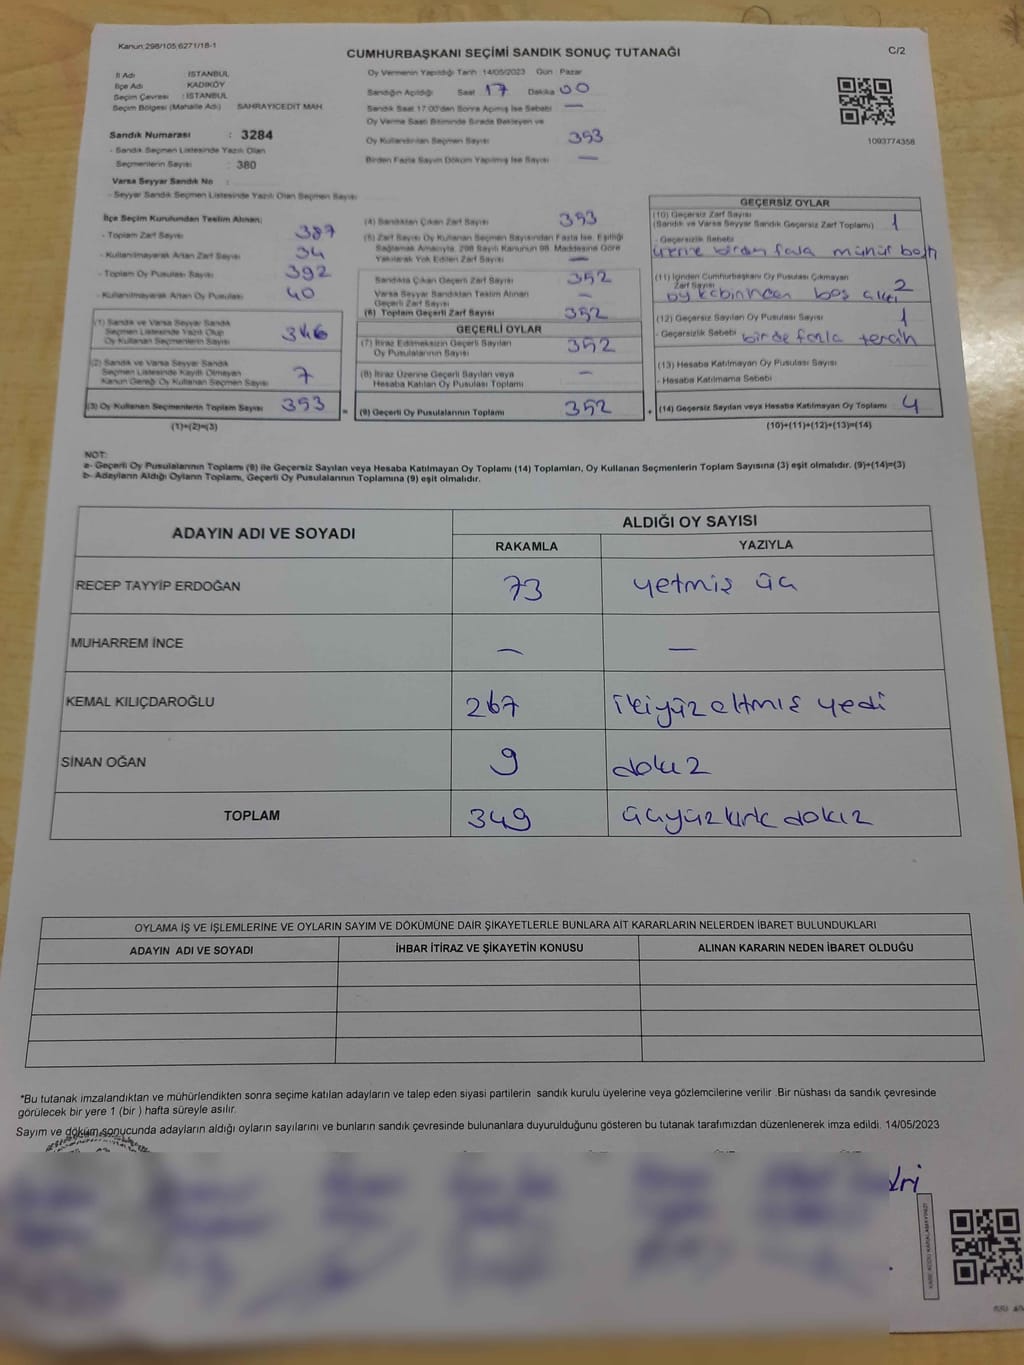 Kanun:298/105;6271/18-1
CUMHURBAŞKANI SEÇİMİ SANDIK SONUÇ TUTANAĞI
C/2
İl Adı İSTANBUL
İlçe Adı KADIKÖY
Seçim Çevresi : İSTANBUL
Seçim Bölgesi (Mahalle Adı) SAHRAYICEDİT MAH
Sandık Numarası : 3284
- Sandık Seçmen Listesinde Yazılı Olan
Seçmenlerin Sayısı : 380
Varsa Seyyar Sandık No :
- Seyyar Sandık Seçmen Listesinde Yazılı Olan Seçmen Sayısı
Oy Vermenin Yapıldığı Tarih 14/05/2023 Gün : Pazar
Sandığın Açıldığı Saat 17 Dakika 00
Sandık Saat 17:00'den Sonra Açılmış İse Sebebi —
Oy Verme Saati Bitiminde Sırada Bekleyen ve
Oy Kullandırılan Seçmen Sayısı 353
Birden Fazla Sayım Döküm Yapılmış İse Sayısı —
1093774358
İlçe Seçim Kurulundan Teslim Alınan;
- Toplam Zarf Sayısı 387
- Kullanılmayarak Artan Zarf Sayısı 34
- Toplam Oy Pusulası Sayısı 392
- Kullanılmayarak Artan Oy Pusulası 40
(1) Sandık ve Varsa Seyyar Sandık
Seçmen Listesinde Yazılı Olup
Oy Kullanan Seçmenlerin Sayısı 346
(2) Sandık ve Varsa Seyyar Sandık
Seçmen Listesinde Kayıtlı Olmayan
Kanun Gereği Oy Kullanan Seçmen Sayısı 7
(3) Oy Kullanan Seçmenlerin Toplam Sayısı 353 =
(1)+(2)=(3)
(4) Sandıktan Çıkan Zarf Sayısı 353
(5) Zarf Sayısı Oy Kullanan Seçmen Sayısından Fazla İse, Eşitliği
Sağlamak Amacıyla, 298 Sayılı Kanunun 98. Maddesine Göre
Yakılarak Yok Edilen Zarf Sayısı —
Sandıkta Çıkan Geçerli Zarf Sayısı 352
Varsa Seyyar Sandıktan Teslim Alınan
Geçerli Zarf Sayısı —
(6) Toplam Geçerli Zarf Sayısı 352
GEÇERLİ OYLAR
(7) İtiraz Edilmeksizin Geçerli Sayılan
Oy Pusulalarının Sayısı 352
(8) İtiraz Üzerine Geçerli Sayılan veya
Hesaba Katılan Oy Pusulası Toplamı —
(9) Geçerli Oy Pusulalarının Toplamı 352 +
GEÇERSİZ OYLAR
(10) Geçersiz Zarf Sayısı
(Sandık ve Varsa Seyyar Sandık Geçersiz Zarf Toplamı) 1
- Geçersizlik Sebebi
üzerine birden fazla mühür
(11) İçinden Cumhurbaşkanı Oy Pusulası Çıkmayan
Zarf Sayısı 2
oy kabininden boş
(12) Geçersiz Sayılan Oy Pusulası Sayısı 1
- Geçersizlik Sebebi birde fazla tercih
(13) Hesaba Katılmayan Oy Pusulası Sayısı
- Hesaba Katılmama Sebebi
(14) Geçersiz Sayılan veya Hesaba Katılmayan Oy Toplamı 4
(10)+(11)+(12)+(13)=(14)
NOT:
a- Geçerli Oy Pusulalarının Toplamı (9) ile Geçersiz Sayılan veya Hesaba Katılmayan Oy Toplamı (14) Toplamları, Oy Kullanan Seçmenlerin Toplam Sayısına (3) eşit olmalıdır. (9)+(14)=(3)
b- Adayların Aldığı Oyların Toplamı, Geçerli Oy Pusulalarının Toplamına (9) eşit olmalıdır.
ADAYIN ADI VE SOYADI
ALDIĞI OY SAYISI
RAKAMLA YAZIYLA
RECEP TAYYİP ERDOĞAN 73 yetmiş üç
MUHARREM İNCE — —
KEMAL KILIÇDAROĞLU 267 ikiyüzaltmış yedi
SİNAN OĞAN 9 dokuz
TOPLAM 349 üçyüzkırk dokuz
OYLAMA İŞ VE İŞLEMLERİNE VE OYLARIN SAYIM VE DÖKÜMÜNE DAİR ŞİKAYETLERLE BUNLARA AİT KARARLARIN NELERDEN İBARET BULUNDUKLARI
ADAYIN ADI VE SOYADI İHBAR İTİRAZ VE ŞİKAYETİN KONUSU ALINAN KARARIN NEDEN İBARET OLDUĞU
*Bu tutanak imzalandıktan ve mühürlendikten sonra seçime katılan adayların ve talep eden siyasi partilerin sandık kurulu üyelerine veya gözlemcilerine verilir. Bir nüshası da sandık çevresinde
görülecek bir yere 1 (bir ) hafta süreyle asılır.
Sayım ve döküm sonucunda adayların aldığı oyların sayılarını ve bunların sandık çevresinde bulunanlara duyurulduğunu gösteren bu tutanak tarafımızdan düzenlenerek imza edildi. 14/05/2023
KARE KODU KARALAMAYINIZ!